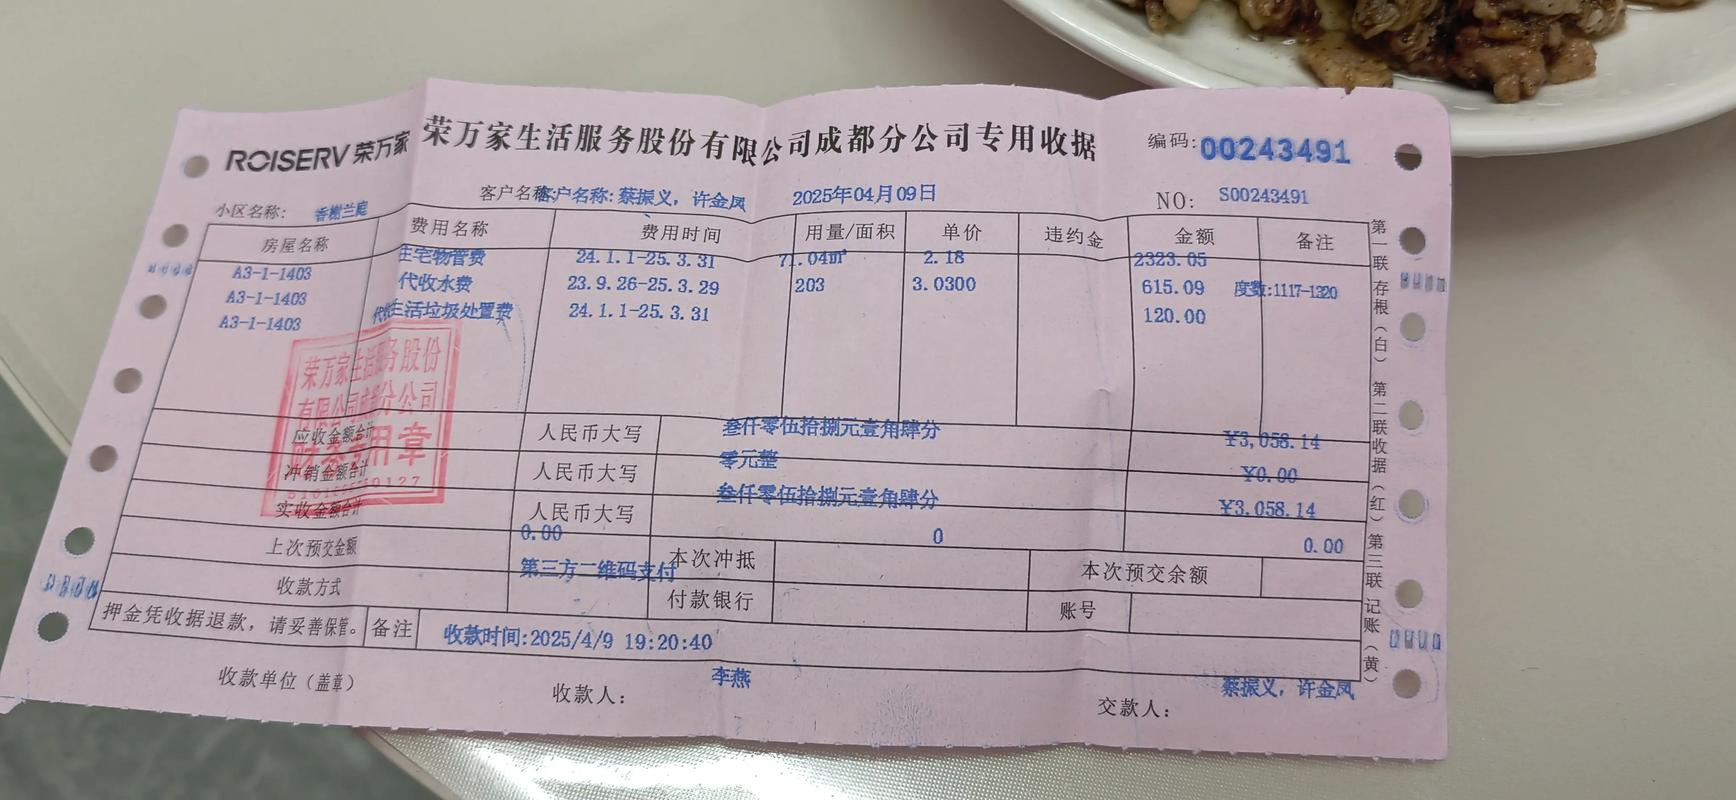 ROISERV 荣万家 荣万家生活服务股份有限公司成都分公司专用收据 编码:00243491
小区名称: 香榭兰庭 客户名称: 客户名称:蔡振义，许金凤 2025年04月09日 NO: S00243491
房屋名称 费用名称 费用时间 用量/面积 单价 违约金 金额 备注
A3-1-1403 住宅物管费 24.1.1-25.3.31 71.04㎡ 2.18 2323.05
A3-1-1403 代收水费 23.9.26-25.3.29 203 3.0300 615.09 度数:1117-1320
A3-1-1403 代收生活垃圾处置费 24.1.1-25.3.31 120.00
荣万家生活服务股份
有限公司成都分公司
财务专用章
应收金额合计 人民币大写 叁仟零伍拾捌元壹角肆分 ¥3,058.14
冲销金额合计 人民币大写 零元整 ¥0.00
实收金额合计 人民币大写 叁仟零伍拾捌元壹角肆分 ¥3,058.14
上次预交金额 0.00 本次冲抵 0 本次预交余额 0.00
收款方式 第三方二维码支付 付款银行 账号
押金凭收据退款，请妥善保管。 备注 收款时间:2025/4/9 19:20:40
收款单位（盖章） 收款人: 李燕 交款人: 蔡振义，许金凤
第一联 存根（白） 第二联 收据（红） 第三联 记账（黄）